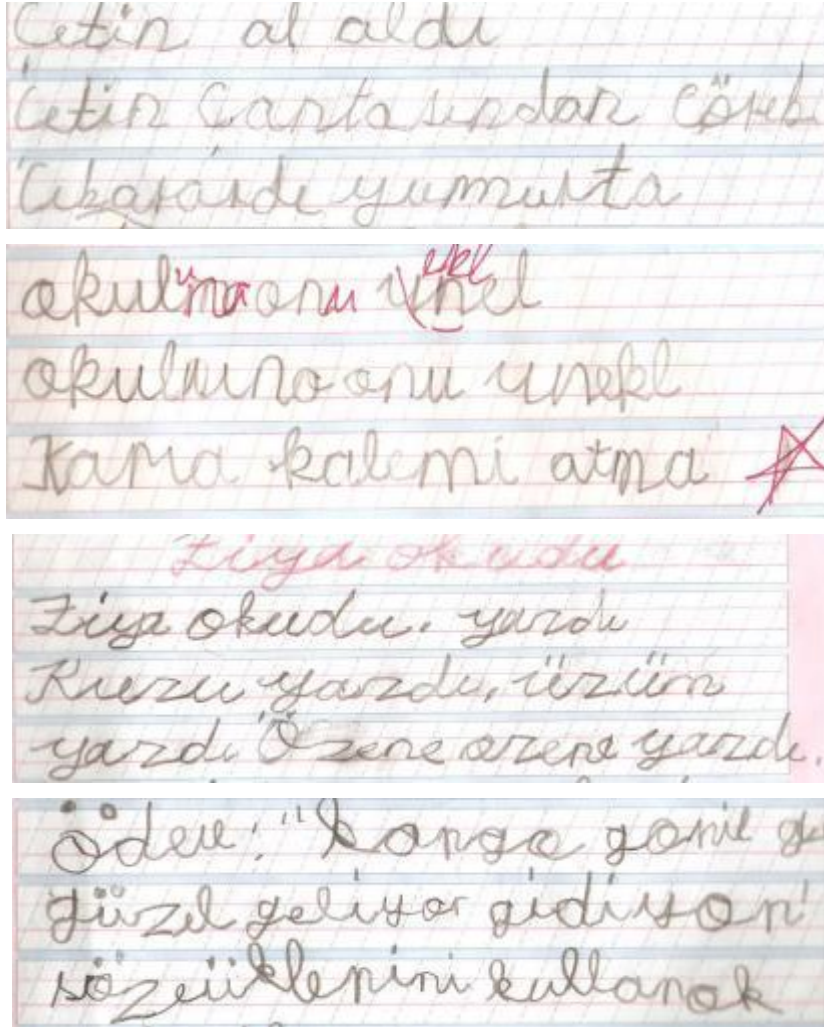 Çetin al aldı
Çetin Çantasından Çöreb
yumurta
okulmaonu
okulnunaonu unekl
Kama kalemi atma
Ziya okudu
Ziya okudu. yazdı
Kuzu yazdı, üzüm
yazdı Özene ozene yazdı.
ödev: "kanga
güzel geliyor gidiyon"
sözcüklerini kullanak